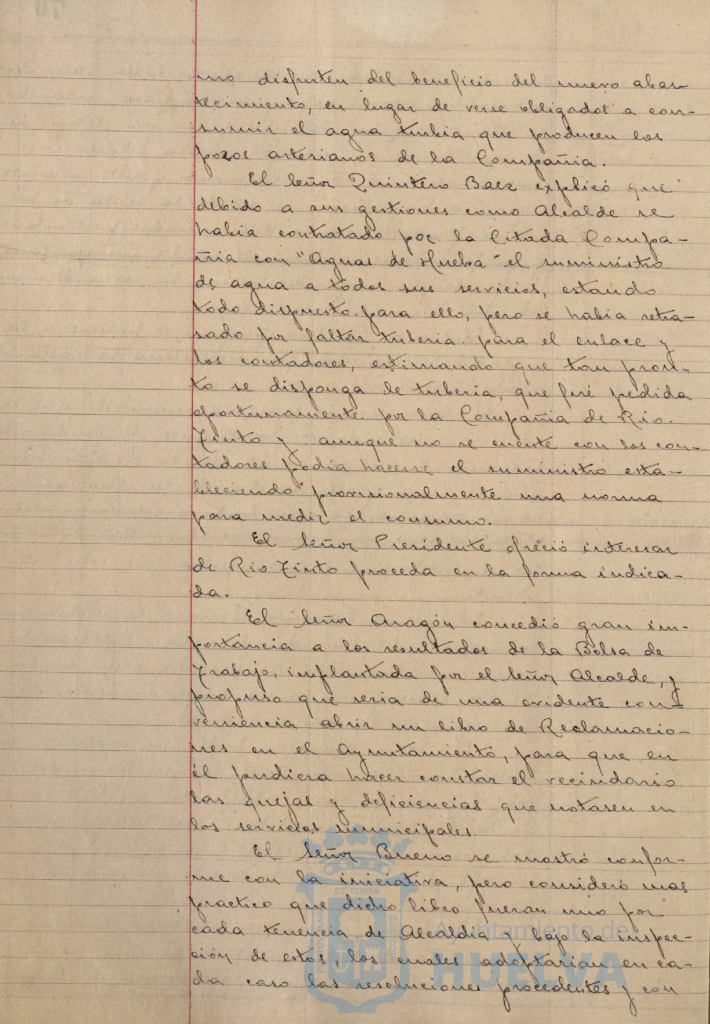 mo disfruten del beneficio del nuevo abas-
tecimiento, en lugar de verse obligados a con-
sumir el agua turbia que producen los
pozos artesianos de la Compañia.
El Señor Quintero Baez explicó que
debido a sus gestiones como Alcalde se
habia contratado por la Citada Compa-
ñia con "Aguas de Huelva" el suministro
de agua a todos sus servicios, estando
todo dispuesto para ello, pero se habia retra-
sado por faltar tuberia para el enlace y
los contadores, estimando que tan pron-
to se disponga de tuberia, que fué pedida
oportunamente por la Compañia de Rio
Tinto y aunque no se cuente con los con-
tadores podia hacerse el suministro esta-
bleciendo provisionalmente una norma
para medir el consumo.
El Señor Presidente ofreció interesar
de Rio Tinto proceda en la forma indica-
da.
El Señor Aragón concedió gran im-
portancia a los resultados de la Bolsa de
Trabajo, implantada por el Señor Alcalde, y
propuso que seria de una evidente con-
veniencia abrir un libro de Reclamacio-
nes en el Ayuntamiento, para que en
él pudiera hacer constar el vecindario
las quejas y deficiencias que notasen en
los servicios municipales.
El Señor Bueno se mostró confor-
me con la iniciativa, pero consideró mas
practico que dicho libro fueran uno por
cada tenencia de Alcaldia y bajo la inspec-
ción de estos, los cuales adoptarian en ca-
da caso las resoluciones procedentes y con
Ayuntamiento de
HUELVA